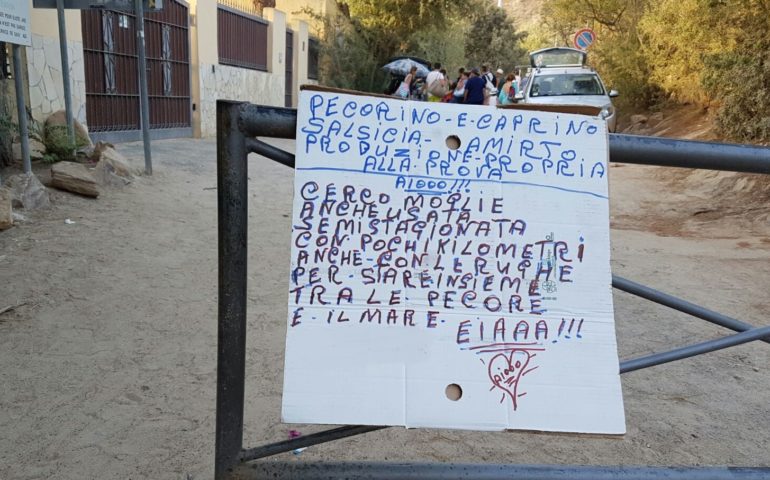 PECORINO-E-CAPRINO
SALSICIA- AMIRTO
PRODUZIONE-PROPRIA
ALLA-PROVA
AIOOO!!!
CERCO MOGLIE
ANCHE USATA
SEMISTAGIONATA
CON-POCHI KILOMETRI
ANCHE-CON LE RUGHE
PER-STARE INSIEME
TRA LE-PECORE
E-IL MARE- EIAAA!!!
AIOOO